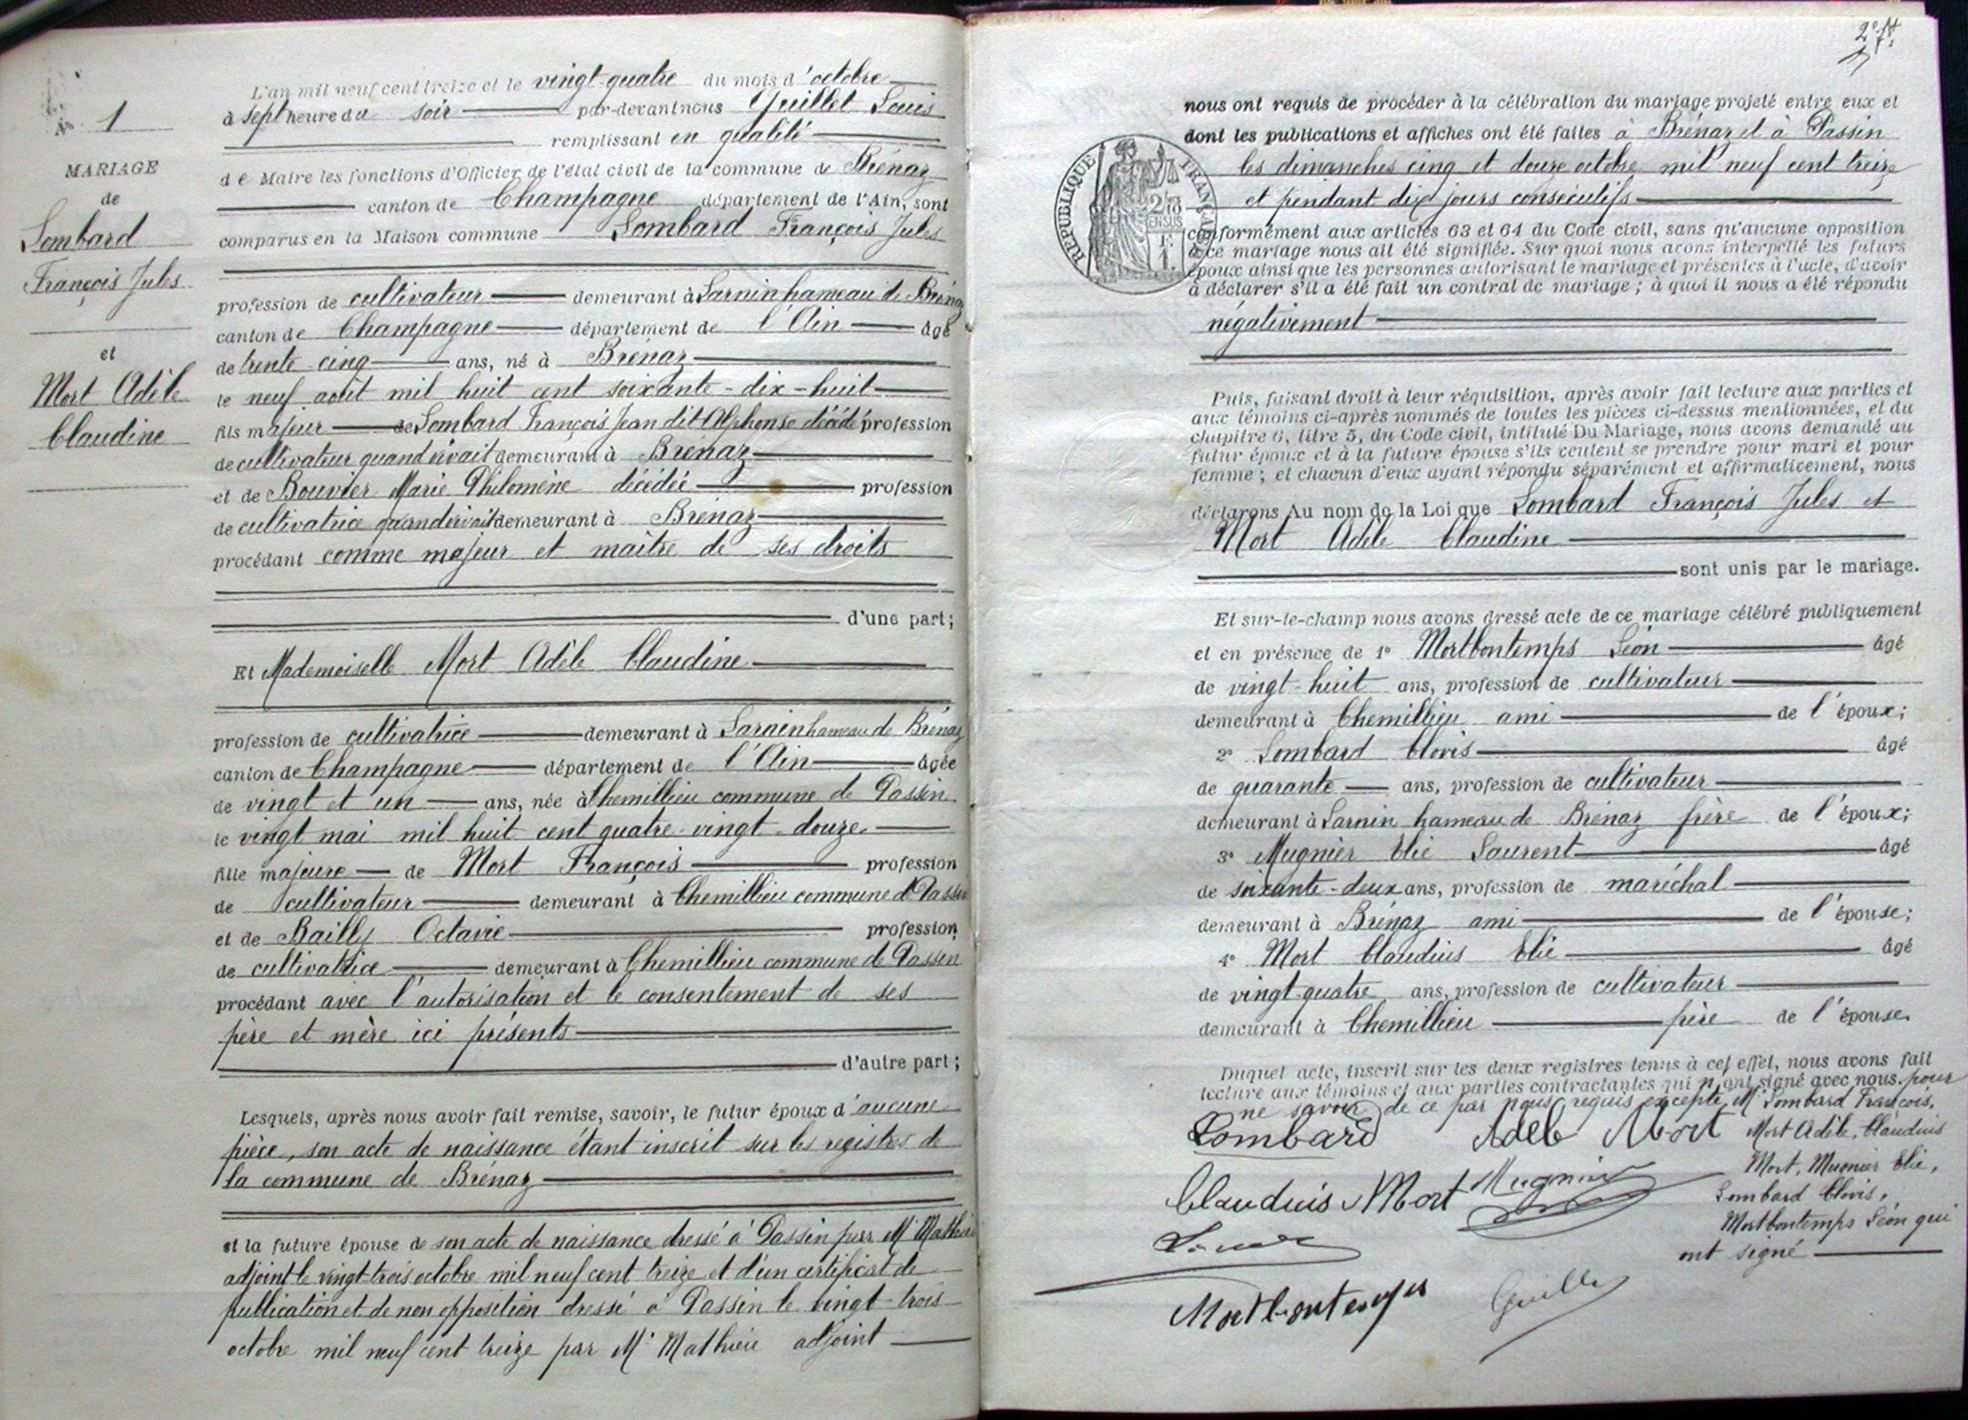 N° 1
MARIAGE
de
Lombard
François Jules
et
Mort Adèle
Claudine
L'an mil neuf cent treize et le vingt-quatre du mois d'octobre
à sept heure du soir par-devant nous Guillet Louis
remplissant en qualité
de Maire les fonctions d'Officier de l'état civil de la commune de Brénaz
canton de Champagne département de l'Ain, sont
comparus en la Maison commune Lombard François Jules
profession de cultivateur demeurant à Sarnin hameau de Brénaz
canton de Champagne département de l'Ain âgé
de trente cinq ans, né à Brénaz
le neuf août mil huit cent soixante-dix-huit
fils majeur de Lombard François Jean dit Alphonse décédé profession
de cultivateur quand vivait demeurant à Brénaz
et de Bouvier Marie Philomène décédée profession
de cultivatrice quand vivait demeurant à Brénaz
procédant comme majeur et maître de ses droits
d'une part;
Et Mademoiselle Mort Adèle Claudine
profession de cultivatrice demeurant à Sarnin hameau de Brénaz
canton de Champagne département de l'Ain âgée
de vingt et un ans, née à Chemillieu commune de Passin
le vingt mai mil huit cent quatre-vingt-douze
fille majeure de Mort François profession
de cultivateur demeurant à Chemillieu commune de Passin
et de Bailly Octavie profession
de cultivatrice demeurant à Chemillieu commune de Passin
procédant avec l'autorisation et le consentement de ses
père et mère ici présents
d'autre part;
Lesquels, après nous avoir fait remise, savoir, le futur époux d'aucune
pièce, son acte de naissance étant inscrit sur les registres de
la commune de Brénaz
et la future épouse de son acte de naissance dressé à Passin par Mr Mathieu
adjoint le vingt-trois octobre mil neuf cent treize et d'un certificat de
publication et de non opposition dressé à Passin le vingt-trois
octobre mil neuf cent treize par Mr Mathieu adjoint
nous ont requis de procéder à la célébration du mariage projeté entre eux et
dont les publications et affiches ont été faites à Brénaz et à Passin
les dimanches cinq et douze octobre mil neuf cent treize
et pendant dix jours consécutifs
RÉPUBLIQUE FRANÇAISE
conformément aux articles 63 et 64 du Code civil, sans qu'aucune opposition
à ce mariage nous ait été signifiée. Sur quoi nous avons interpellé les futurs
époux ainsi que les personnes autorisant le mariage et présentes à l'acte, d'avoir
à déclarer s'il a été fait un contrat de mariage; à quoi il nous a été répondu
négativement
Puis, faisant droit à leur réquisition, après avoir fait lecture aux parties et
aux témoins ci-après nommés de toutes les pièces ci-dessus mentionnées, et du
chapitre 6, titre 5, du Code civil, intitulé Du Mariage, nous avons demandé au
futur époux et à la future épouse s'ils veulent se prendre pour mari et pour
femme; et chacun d'eux ayant répondu séparément et affirmativement, nous
déclarons Au nom de la Loi que Lombard François Jules et
Mort Adèle Claudine
sont unis par le mariage.
Et sur-le-champ nous avons dressé acte de ce mariage célébré publiquement
et en présence de 1° Mortbontemps Léon âgé
de vingt-huit ans, profession de cultivateur
demeurant à Chemillieu ami de l'époux;
2° Lombard Clovis âgé
de quarante ans, profession de cultivateur
demeurant à Sarnin hameau de Brénaz frère de l'époux;
3° Mugnier Elie Laurent âgé
de soixante-deux ans, profession de maréchal
demeurant à Brénaz ami de l'épouse;
4° Mort Claudius Elie âgé
de vingt-quatre ans, profession de cultivateur
demeurant à Chemillieu frère de l'épouse
Duquel acte, inscrit sur les deux registres tenus à cet effet, nous avons fait
lecture aux témoins et aux parties contractantes qui n'ont signé avec nous pour
ne savoir de ce par nous requis excepté Mr Lombard François,
Mort Adèle, Claudius
Mort, Mugnier Elie,
Lombard Clovis,
Mortbontemps Léon qui
ont signé
Lombard Adèle Mort
Claudius Mort Mugnier
Mortbontemps Guillet